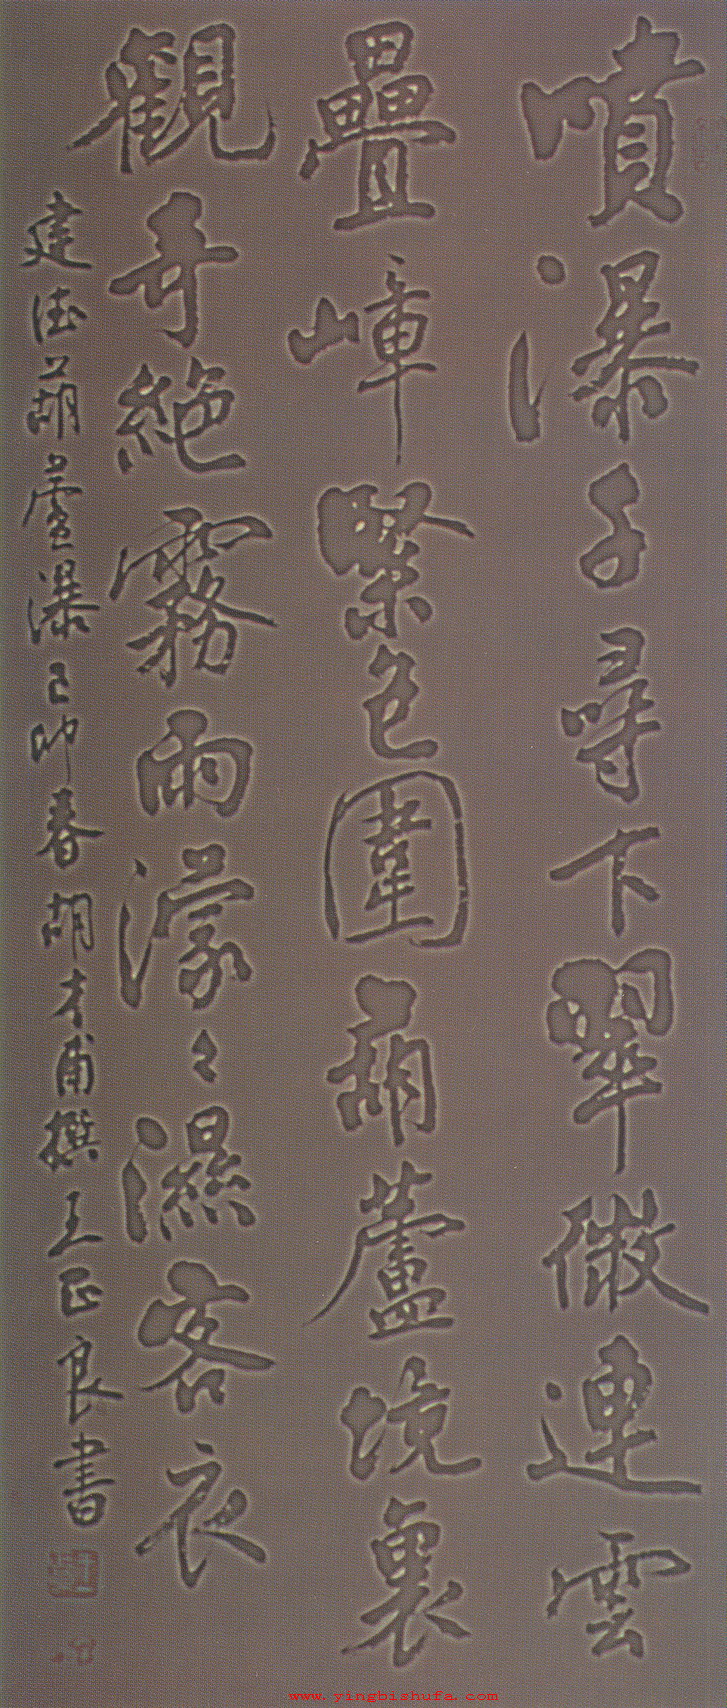 噴瀑千尋下翠微連雲
疊嶂緊色圍葫蘆境裏
觀奇絕霧雨濛々濕客衣
建德葫蘆瀑己卯春胡才甫撰王正良書
www.yingbishufa.com